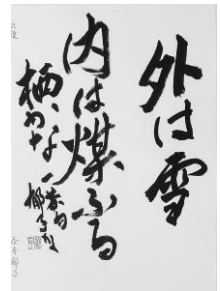 外は雪
内は煤ふる
栖かな
一茶句